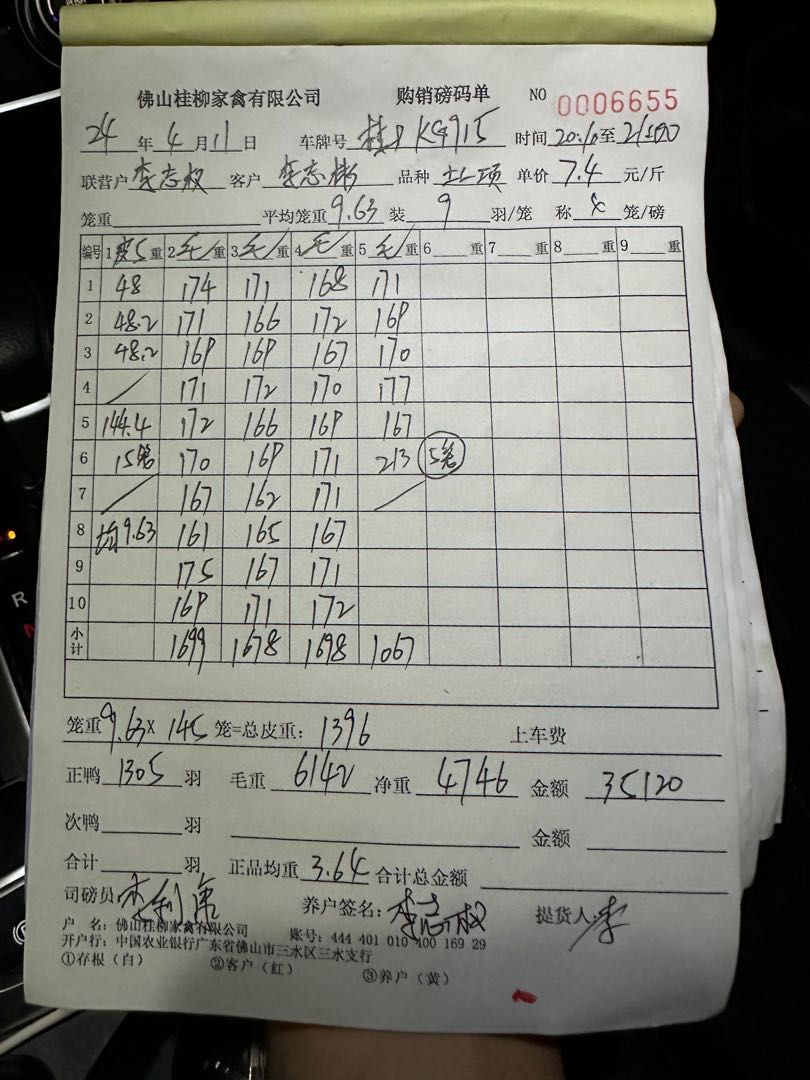 佛山桂柳家禽有限公司 购销磅码单 NO 0006655
24年4月11日 车牌号 KG915 时间20:10至21:00
联营户 李志权 客户 李志彬 品种 土二项 单价7.4元/斤
笼重 平均笼重9.63装9羽/笼 称 笼/磅
编号 1皮重 2毛重 3毛重 4毛重 5毛重 6重 7重 8重 9重
1 48 174 171 168 171
2 48.2 171 166 172 169
3 48.2 169 169 167 170
4 / 171 172 170 177
5 144.4 172 166 169 167
6 15笼 170 169 171 213 5笼
7 / 167 162 171 /
8 均9.63 161 165 167
9 175 167 171
10 169 171 172
小计 1699 1678 1698 1067
笼重9.63×145笼=总皮重：1396 上车费
正鸭1305羽 毛重6142净重4746金额35120
次鸭 羽 金额
合计 羽 正品均重3.64合计总金额
司磅员 李 养户签名：李志权 提货人：李
户 名：佛山桂柳家禽有限公司 账号：444 401 010 400 169 29
开户行：中国农业银行广东省佛山市三水区三水支行
①存根（白） ②客户（红） ③养户（黄）
R